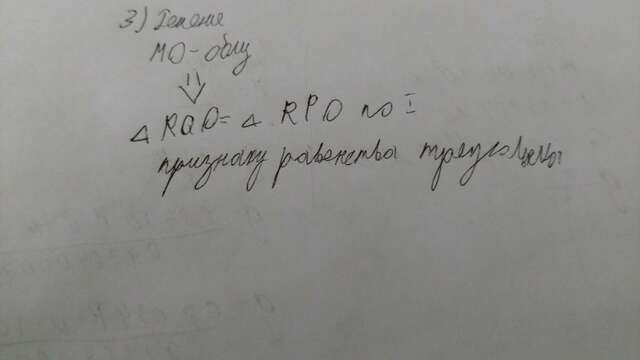 3)
MO-общ
⇓
△ RQO= △ RPO по I
признаку равенства треугольников